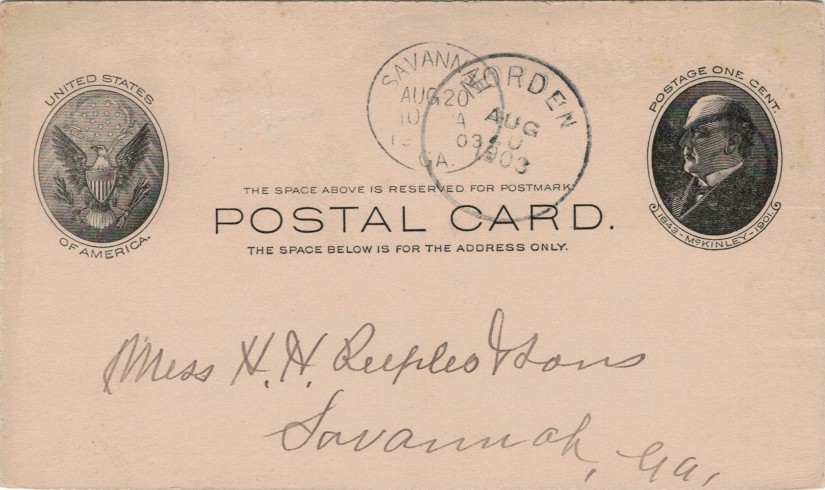 UNITED STATES
OF AMERICA.
SAVANNAH
AUG 20
10 A
03
GA.
MORDEN
AUG
1903
POSTAGE ONE CENT.
1843-McKINLEY-1901.
THE SPACE ABOVE IS RESERVED FOR POSTMARK.
POSTAL CARD.
THE SPACE BELOW IS FOR THE ADDRESS ONLY.
Mess H. H. & Sons
Savannah, Ga,